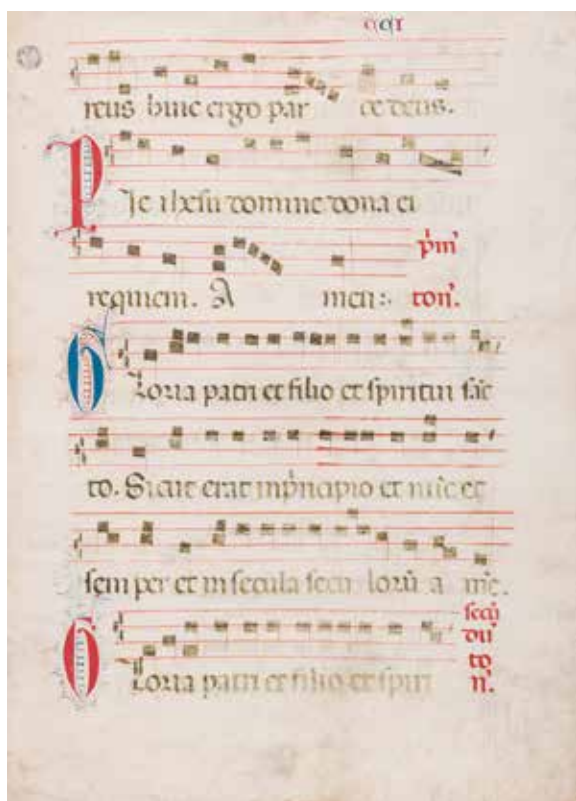 CCI
reus huic ergo par ce deus.
Pie ihesu domine dona ei
requiem. Amen: p̄im̄
ton̄.
Gloria patri et filio et spiritui san̄c
to. Sicut erat in p̄ncipio et nūc et
semper et in secula seculorū amē.
secū
dū
Gloria patri et filio et spiri to
n̄.